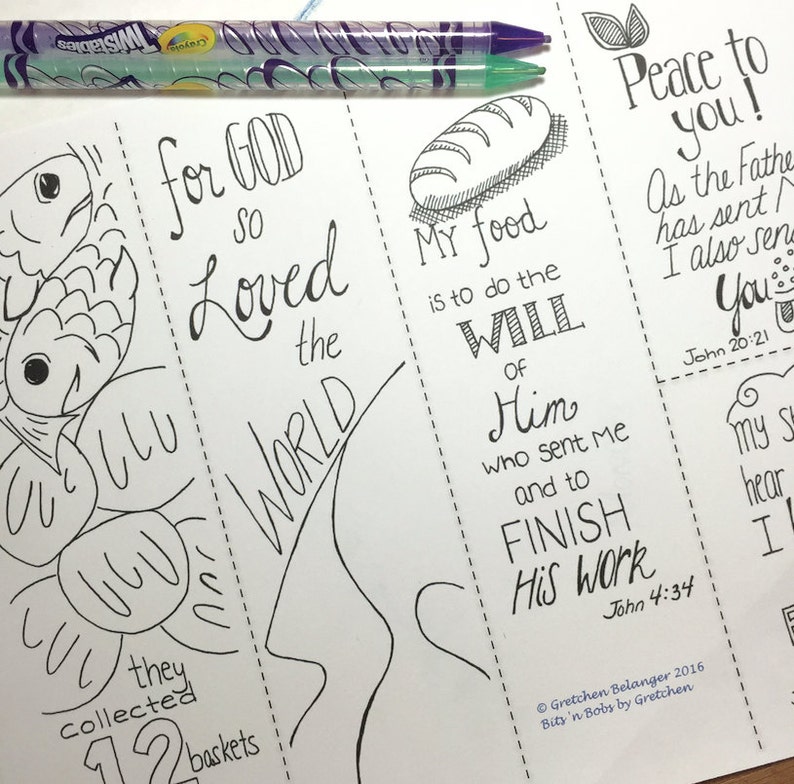 Crayola
TWISTABLES
for GOD
so
Loved
the
WORLD
My food
is to do the
WILL
of
Him
who sent Me
and to
FINISH
His Work
John 4:34
© Gretchen Belanger 2016
Bits 'n Bobs by Gretchen
Peace to
you!
As the Fathe
has sent
I also sen
You
John 20:21
my s
hear
I
they
collected
12 baskets